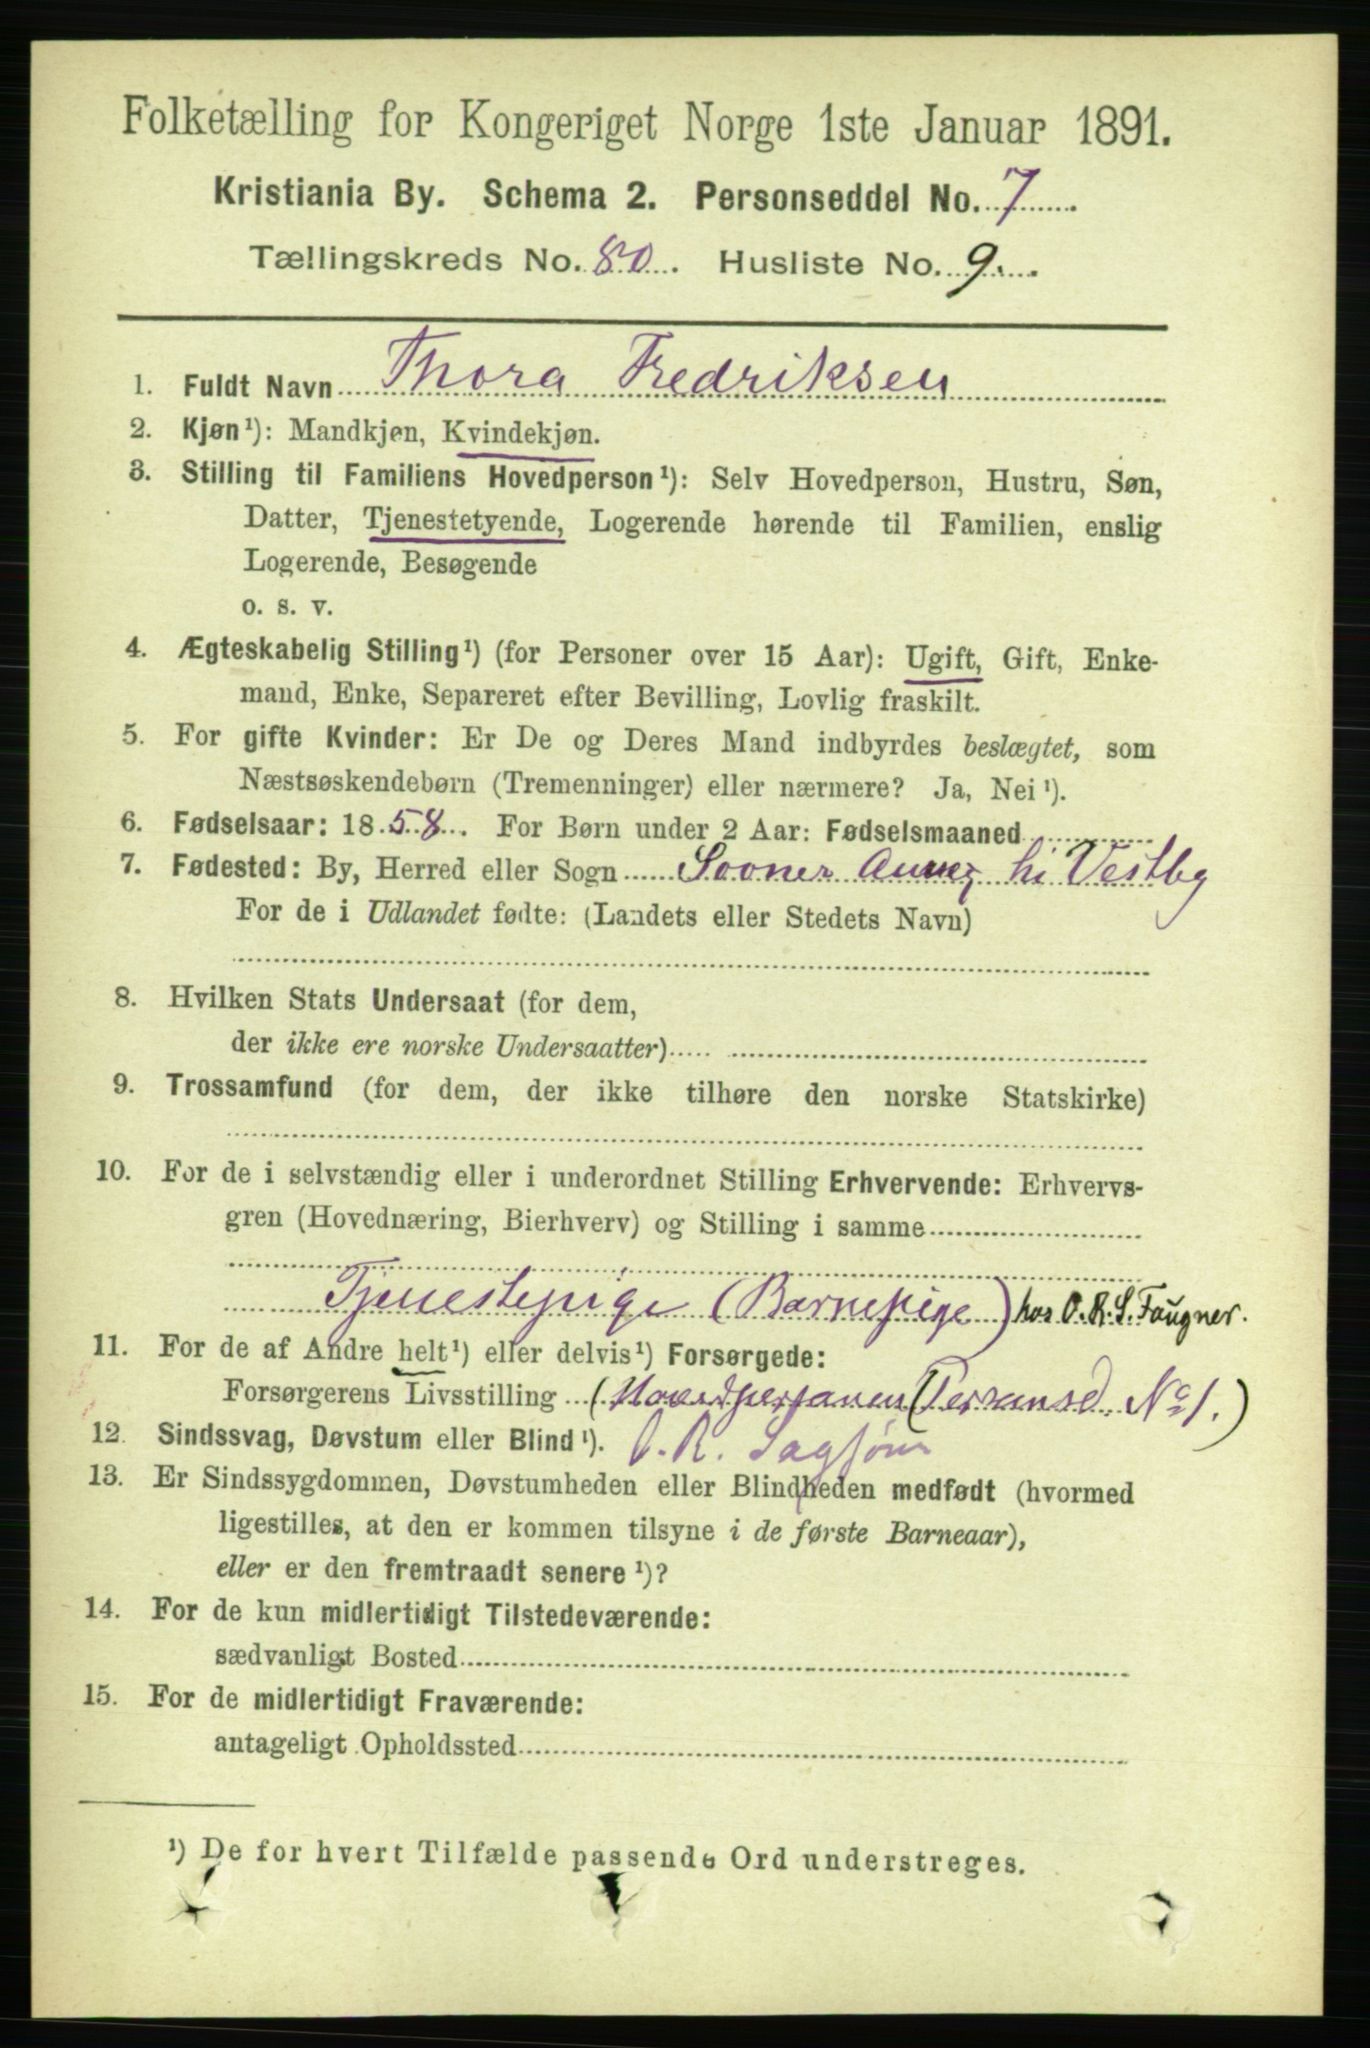 Folketælling for Kongeriget Norge 1ste Januar 1891.
Kristiania By. Schema 2. Personseddel No. 7
Tællingskreds No. 80. Husliste No. 9.
1. Fuldt Navn Thora Fredriksen
2. Kjøn¹): Mandkjøn, Kvindekjøn.
3. Stilling til Familiens Hovedperson¹): Selv Hovedperson, Hustru, Søn,
Datter, Tjenestetyende, Logerende hørende til Familien, enslig
Logerende, Besøgende
o. s. v.
4. Ægteskabelig Stilling¹) (for Personer over 15 Aar): Ugift, Gift, Enke-
mand, Enke, Separeret efter Bevilling, Lovlig fraskilt.
5. For gifte Kvinder: Er De og Deres Mand indbyrdes beslægtet, som
Næstsøskendebørn (Tremenninger) eller nærmere? Ja, Nei¹).
6. Fødselsaar: 1858. For Børn under 2 Aar: Fødselsmaaned
7. Fødested: By, Herred eller Sogn Sooner Vestby
For de i Udlandet fødte: (Landets eller Stedets Navn)
8. Hvilken Stats Undersaat (for dem,
der ikke ere norske Undersaatter)
9. Trossamfund (for dem, der ikke tilhøre den norske Statskirke)
10. For de i selvstændig eller i underordnet Stilling Erhvervende: Erhvervs-
gren (Hovednæring, Bierhverv) og Stilling i samme
Tjenestepige (Barnepige) hos O. R. S. Faugner.
11. For de af Andre helt¹) eller delvis¹) Forsørgede:
Forsørgerens Livsstilling (Hovedpersonen (Personsed. No 1.)
12. Sindssvag, Døvstum eller Blind¹). O. R.
13. Er Sindssygdommen, Døvstumheden eller Blindheden medfødt (hvormed
ligestilles, at den er kommen tilsyne i de første Barneaar),
eller er den fremtraadt senere¹)?
14. For de kun midlertidigt Tilstedeværende:
sædvanligt Bosted
15. For de midlertidigt Fraværende:
antageligt Opholdssted
¹) De for hvert Tilfælde passende Ord understreges.